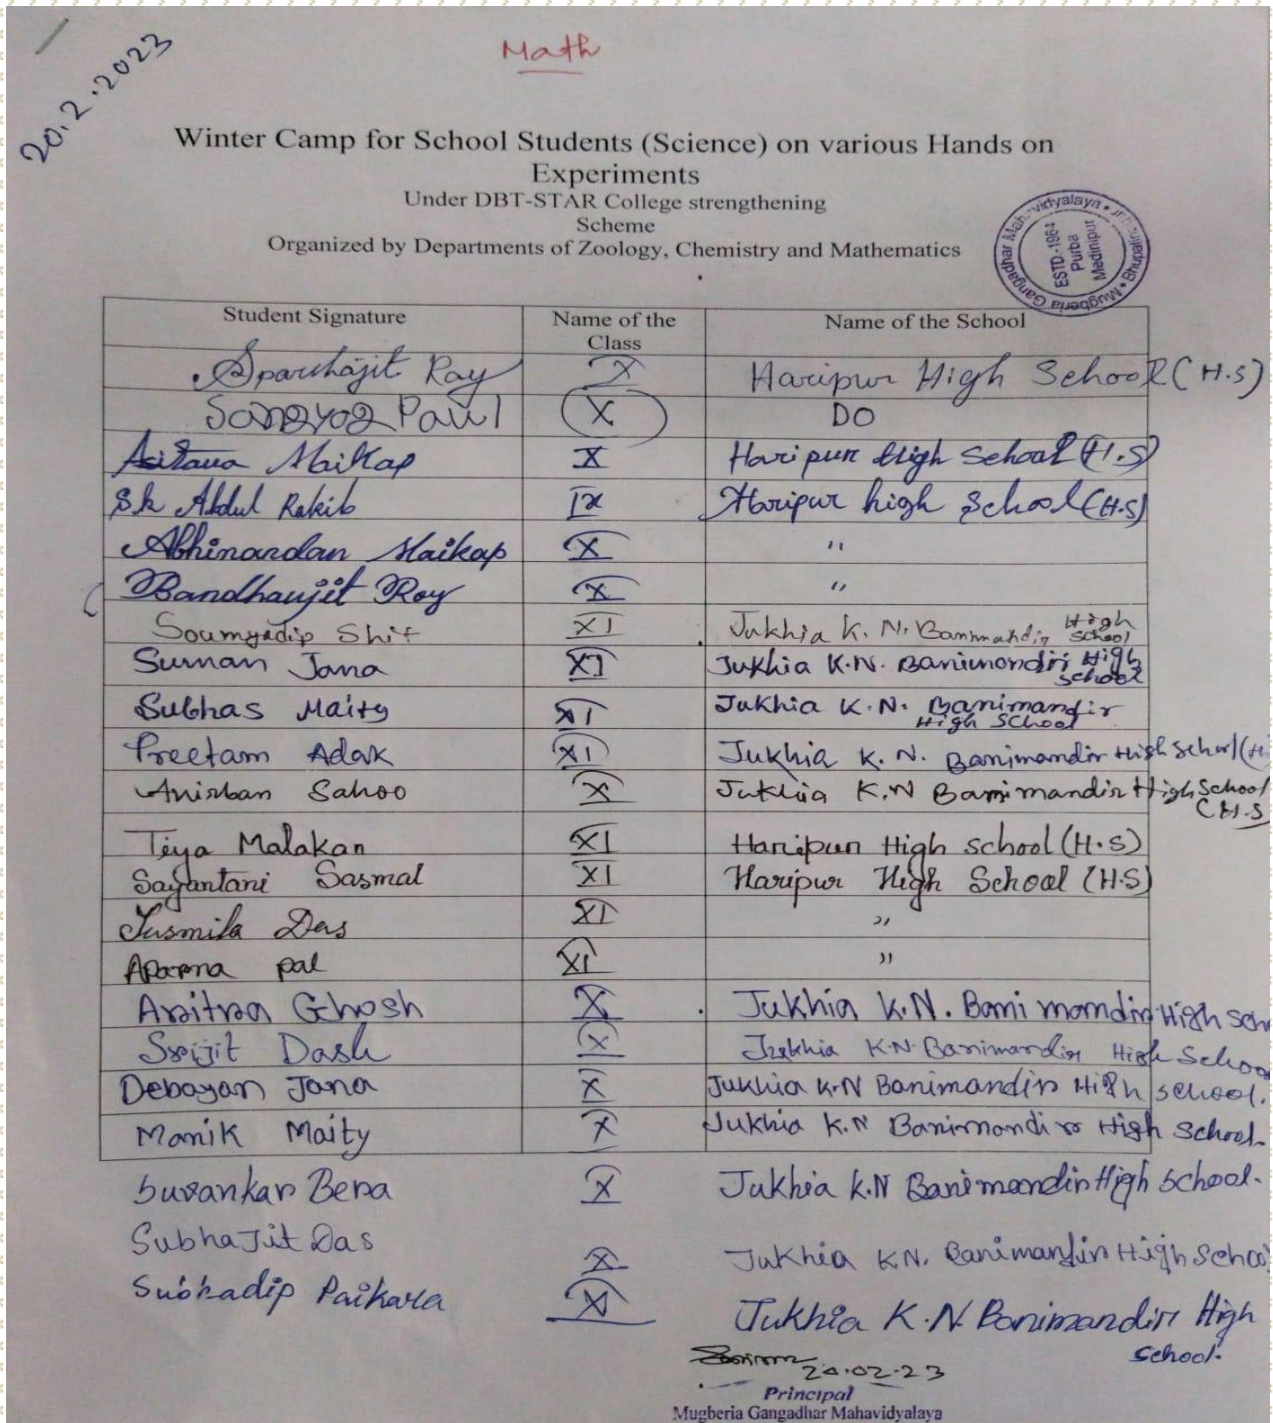 20.2.2023
Math
Winter Camp for School Students (Science) on various Hands on
Experiments
Under DBT-STAR College strengthening
Scheme
Organized by Departments of Zoology, Chemistry and Mathematics
Mugberia Gangadhar Mahavidyalaya
ESTD.-1964
Purba
Medinipur
Student Signature Name of the Class Name of the School
Sparshajit Roy X Haripur High School (H.S)
Sangyog Paul X DO
Maikap X Haripur High School (H.S)
Sk Abdul Rakib IX Haripur high School (H.S)
Abhinandan Maikap X "
Bandhanjit Roy X "
Soumyadip Shit XI Jukhia K. N. Banimandir High School
Suman Jana XI Jukhia K.N. Banimondir High School
Subhas Maity XI Jukhia K.N. Banimandir High School
Preetam Adak XI Jukhia K. N. Banimandir High School (H
Anirban Sahoo X Jukhia K.N Banimandir High School (H.S
Tiya Malakar XI Haripur High school (H.S)
Sayantani Sasmal XI Haripur High School (H.S)
Susmita Das XI "
Aparna pal XI "
Aritra Ghosh X Jukhia K.N. Bani mandir High Sch
Srijit Dash X Jukhia K.N. Banimandir High Schoo
Debayan Jana X Jukhia K.N Banimandir High school.
Manik Maity X Jukhia K.N Banimandir High School.
Suvankar Bera X Jukhia K.N Banimandir High School.
Subhajit Das X Jukhia K.N. Banimandir High Schoo
Subhadip Paikara XI Jukhia K.N Banimandir High School.
20.02.23
Principal
Mugberia Gangadhar Mahavidyalaya